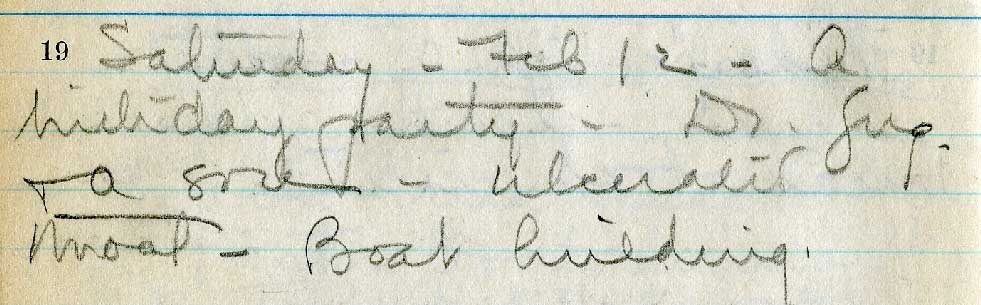 19 Saturday - Feb 12 - A
birthday party - Dr. Gug.
+ a sore - ulcerated
throat - Boat building.